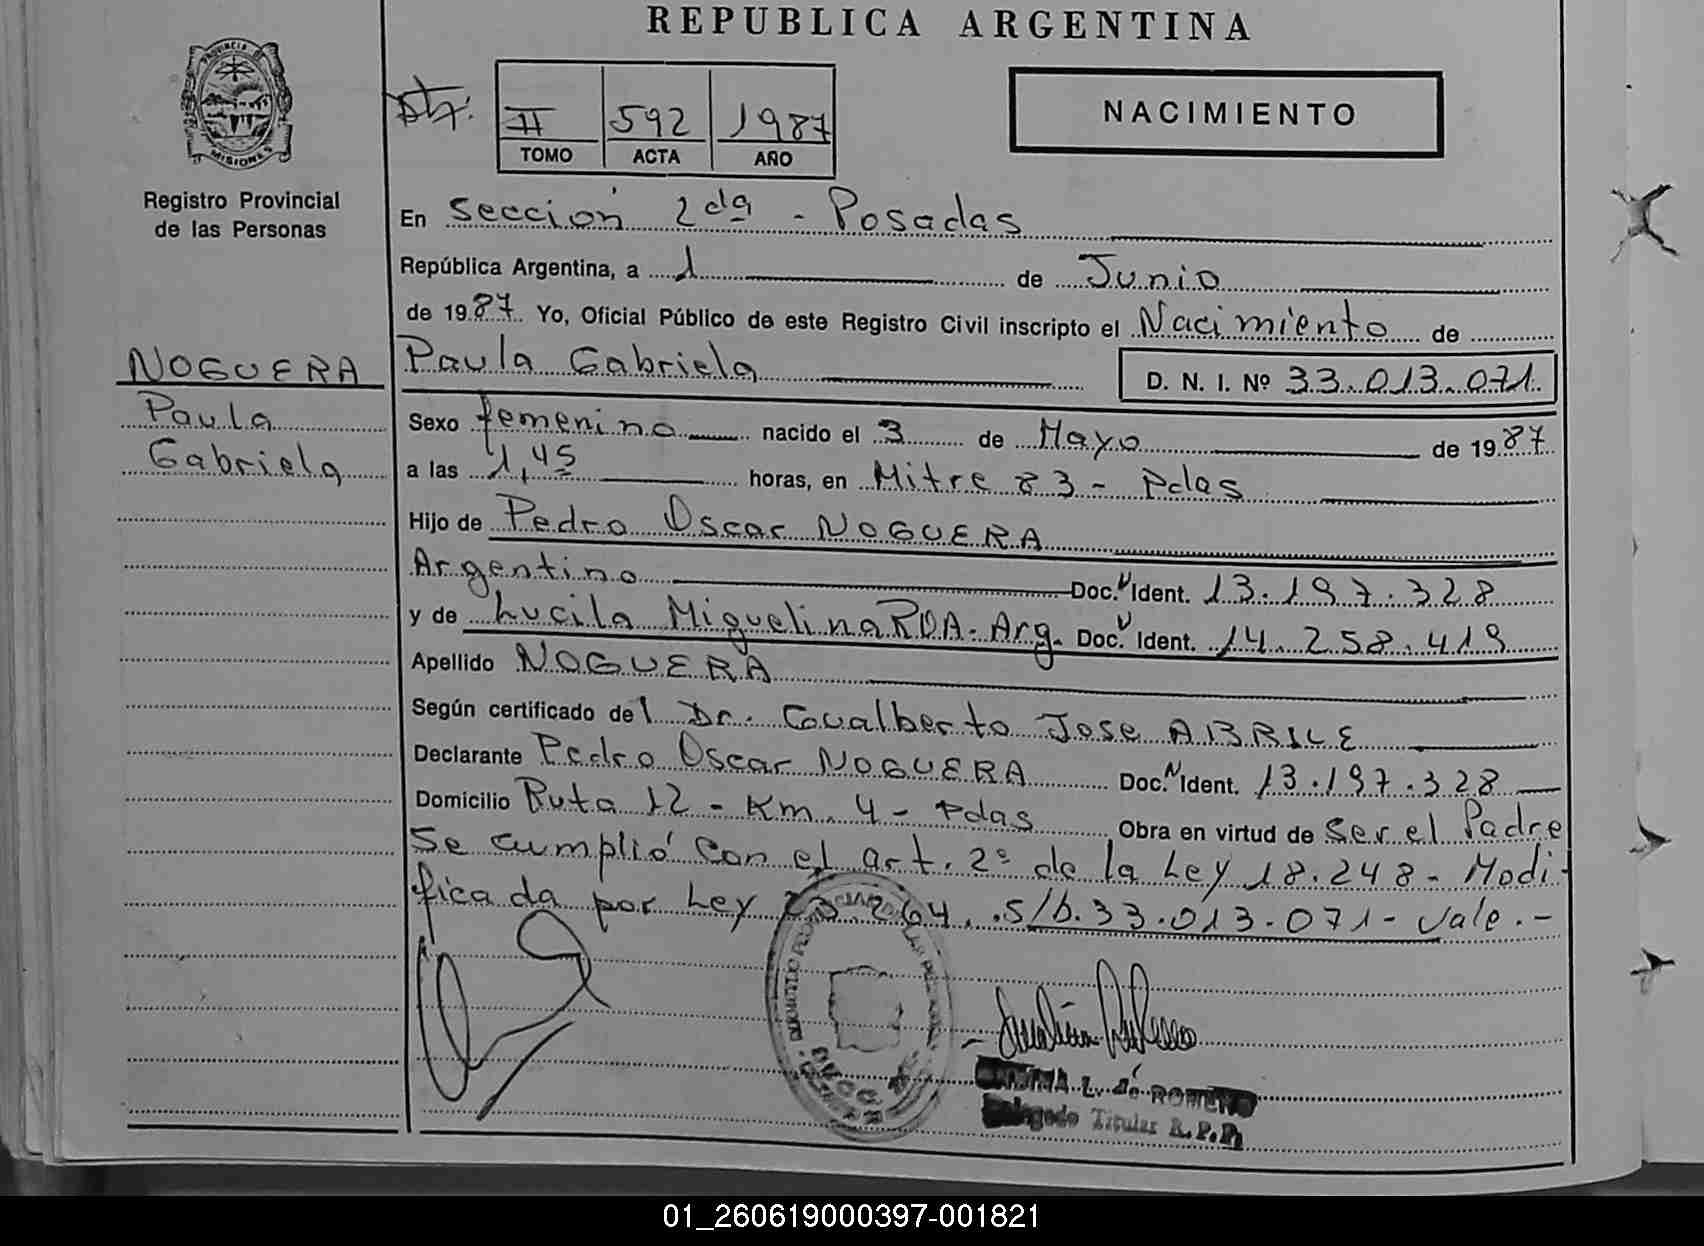 REPUBLICA ARGENTINA
PROVINCIA DE
MISIONES
Registro Provincial
de las Personas
II 592 1987
TOMO ACTA AÑO
NACIMIENTO
En Sección 2da - Posadas
República Argentina, a 1 de Junio
de 1987. Yo, Oficial Público de este Registro Civil inscripto el Nacimiento de
NOGUERA
Paula
Gabriela
Paula Gabriela D. N. I. Nº 33.013.071.
Sexo femenino nacido el 3 de Mayo de 1987
a las 1,45 horas, en Mitre 83 - Pdas
Hijo de Pedro Oscar NOGUERA
Argentino Doc. N Ident. 13.197.328
y de Lucila Miguelina ROA. Arg. Doc. Ident. 14.258.419
Apellido NOGUERA
Según certificado del Dr. Goualberto Jose ABRILE
Declarante Pedro Oscar NOGUERA Doc. N Ident. 13.197.328
Domicilio Ruta 12 - Km. 4 - Pdas Obra en virtud de Ser el Padre
Se cumplió con el art. 2º de la Ley 18.248 - Modi-
ficada por Ley 264. s/b. 33.013.071 - Vale. -
L. de ROMERO
Delegado Titular R.P.P.
01_260619000397-001821